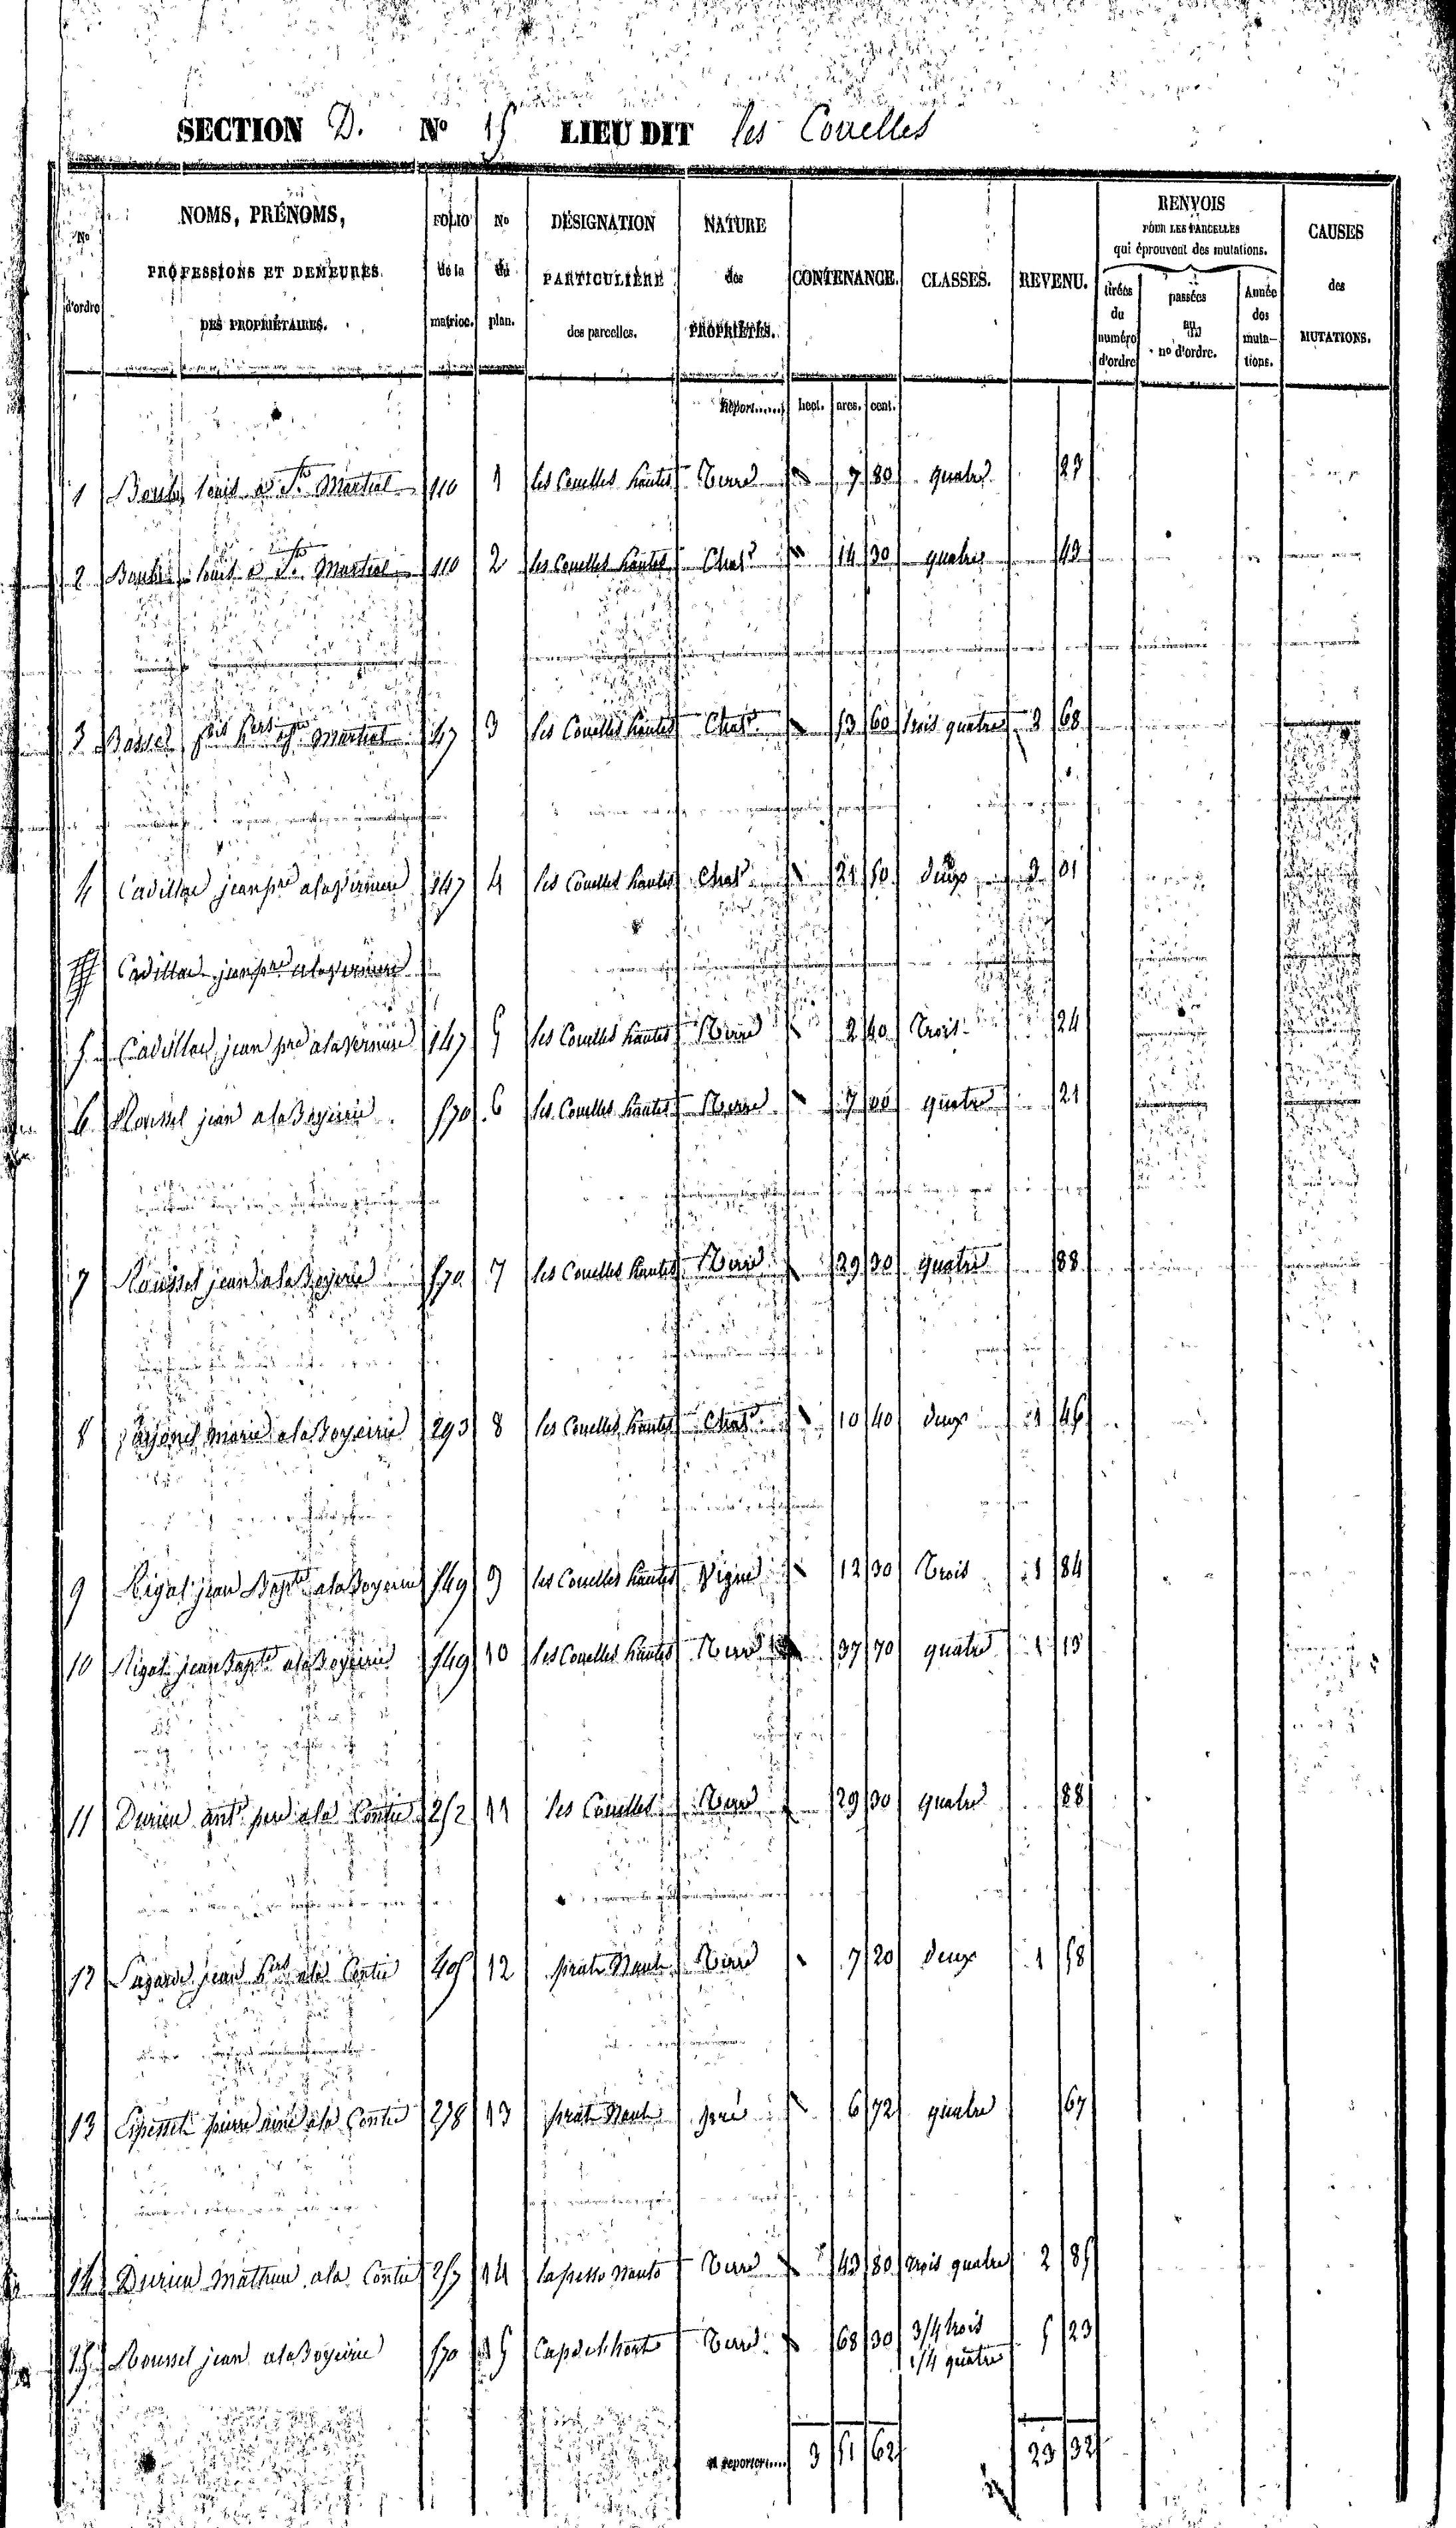 SECTION D. No 15 LIEU DIT les Couelles
No d'ordre
NOMS, PRÉNOMS, PROFESSIONS ET DEMEURES DES PROPRIÉTAIRES.
FOLIO de la matrice.
No du plan.
DÉSIGNATION PARTICULIÈRE des parcelles.
NATURE des PROPRIÉTÉS.
CONTENANCE.
CLASSES.
REVENU.
RENVOIS POUR LES PARCELLES qui éprouvent des mutations.
tirées du numéro d'ordre
passées au no d'ordre.
Année des mutations.
CAUSES des MUTATIONS.
Report...... hect. ares. cent.
1 louis a St Martial 110 1 les Couelles hautes Terre 7 80 quatre 23
2 louis a St Martial 110 2 les Couelles hautes Chat 14 30 quatre 43
3 Basset Martial 47 3 les Couelles hautes Chat 60 trois quatre 68
4 Cadillac jean pre a la Verniere 147 4 les Couelles hautes Chat 21 50 deux 3 01
Cadillac jean pre a la Verniere
5 Cadillac jean pre a la Verniere 147 5 les Couelles hautes Terre 2 40 Trois 24
6 Roussel jean a la Boyeirie 570 6 les Couelles hautes Terre 7 00 quatre 21
7 Roussel jean a la Boyeirie 570 7 les Couelles hautes Terre 29 30 quatre 88
8 marie a la Boyeirie 293 8 les Couelles hautes Chat 10 40 deux 1 46
9 Rigal jean Bapte a la Boyeirie 549 9 les Couelles hautes Vigne 12 30 Trois 1 84
10 Rigal jean Bapte a la Boyeirie 549 10 les Couelles hautes Terre 37 70 quatre 1 13
11 Durieu ant a la Contie 252 11 les Couelles Terre 29 30 quatre 88
12 jean a la Contie 405 12 prat Naut Terre 7 20 deux 1 58
13 pierre ainé a la Contie 278 13 prat Naut pré 6 72 quatre 67
14 Durieu Mathieu a la Contie 257 14 Terre 43 80 trois quatre 2 85
15 Roussel jean a la Boyeirie 570 15 Cap del hort Terre 68 30 3/4 trois
1/4 quatre 5 23
A reporter.... 3 51 62 23 32